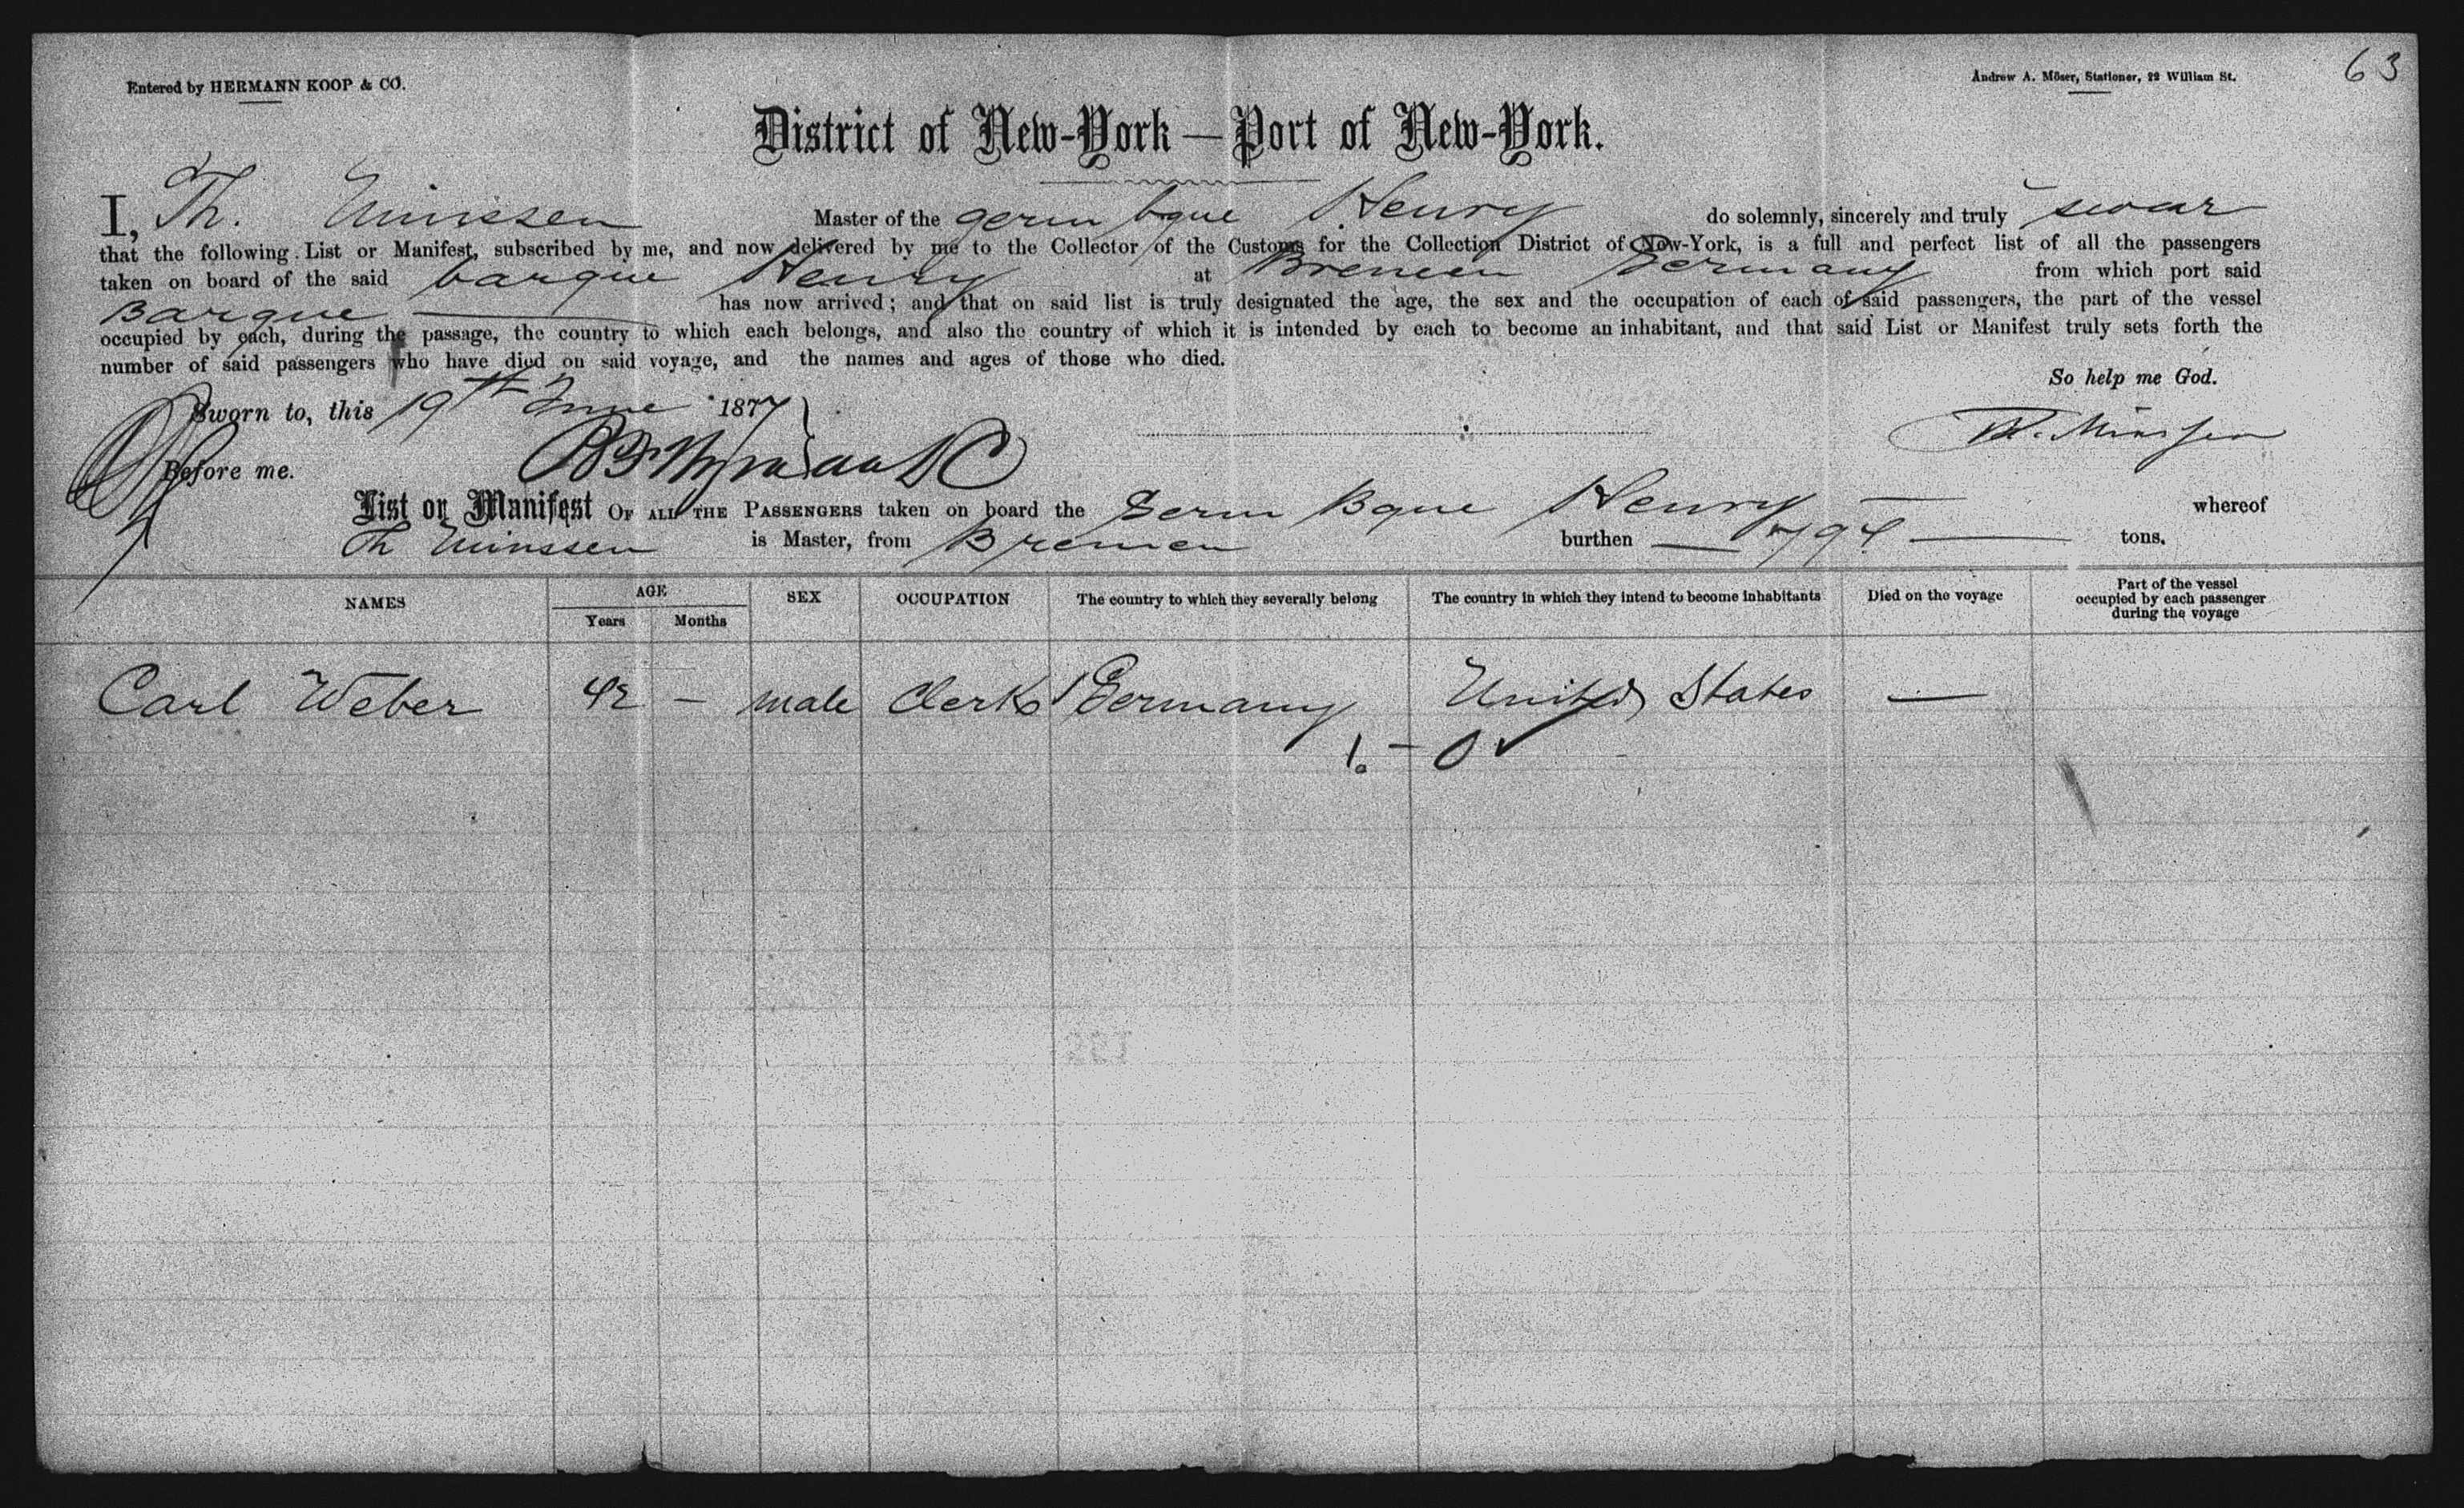 63
Entered by HERMANN KOOP & CO.
Andrew A. Möser, Stationer, 22 William St.
District of New-York — Port of New-York.
I, Th. Minssen Master of the germ bque Henry do solemnly, sincerely and truly swear
that the following List or Manifest, subscribed by me, and now delivered by me to the Collector of the Customs for the Collection District of New-York, is a full and perfect list of all the passengers
taken on board of the said barque Henry at Bremen Germany from which port said
Barque — has now arrived; and that on said list is truly designated the age, the sex and the occupation of each of said passengers, the part of the vessel
occupied by each, during the passage, the country to which each belongs, and also the country of which it is intended by each to become an inhabitant, and that said List or Manifest truly sets forth the
number of said passengers who have died on said voyage, and the names and ages of those who died.
So help me God.
Sworn to, this 19th June 1877
Th. Minssen
Before me.
List or Manifest OF ALL THE PASSENGERS taken on board the Germ Bque Henry — whereof
Th Minssen is Master, from Bremen burthen — 794 — tons.
NAMES AGE Years Months SEX OCCUPATION The country to which they severally belong The country in which they intend to become inhabitants Died on the voyage Part of the vessel occupied by each passenger during the voyage
Carl Weber 42 – male Clerk Germany United States —
1. – 0 ✓